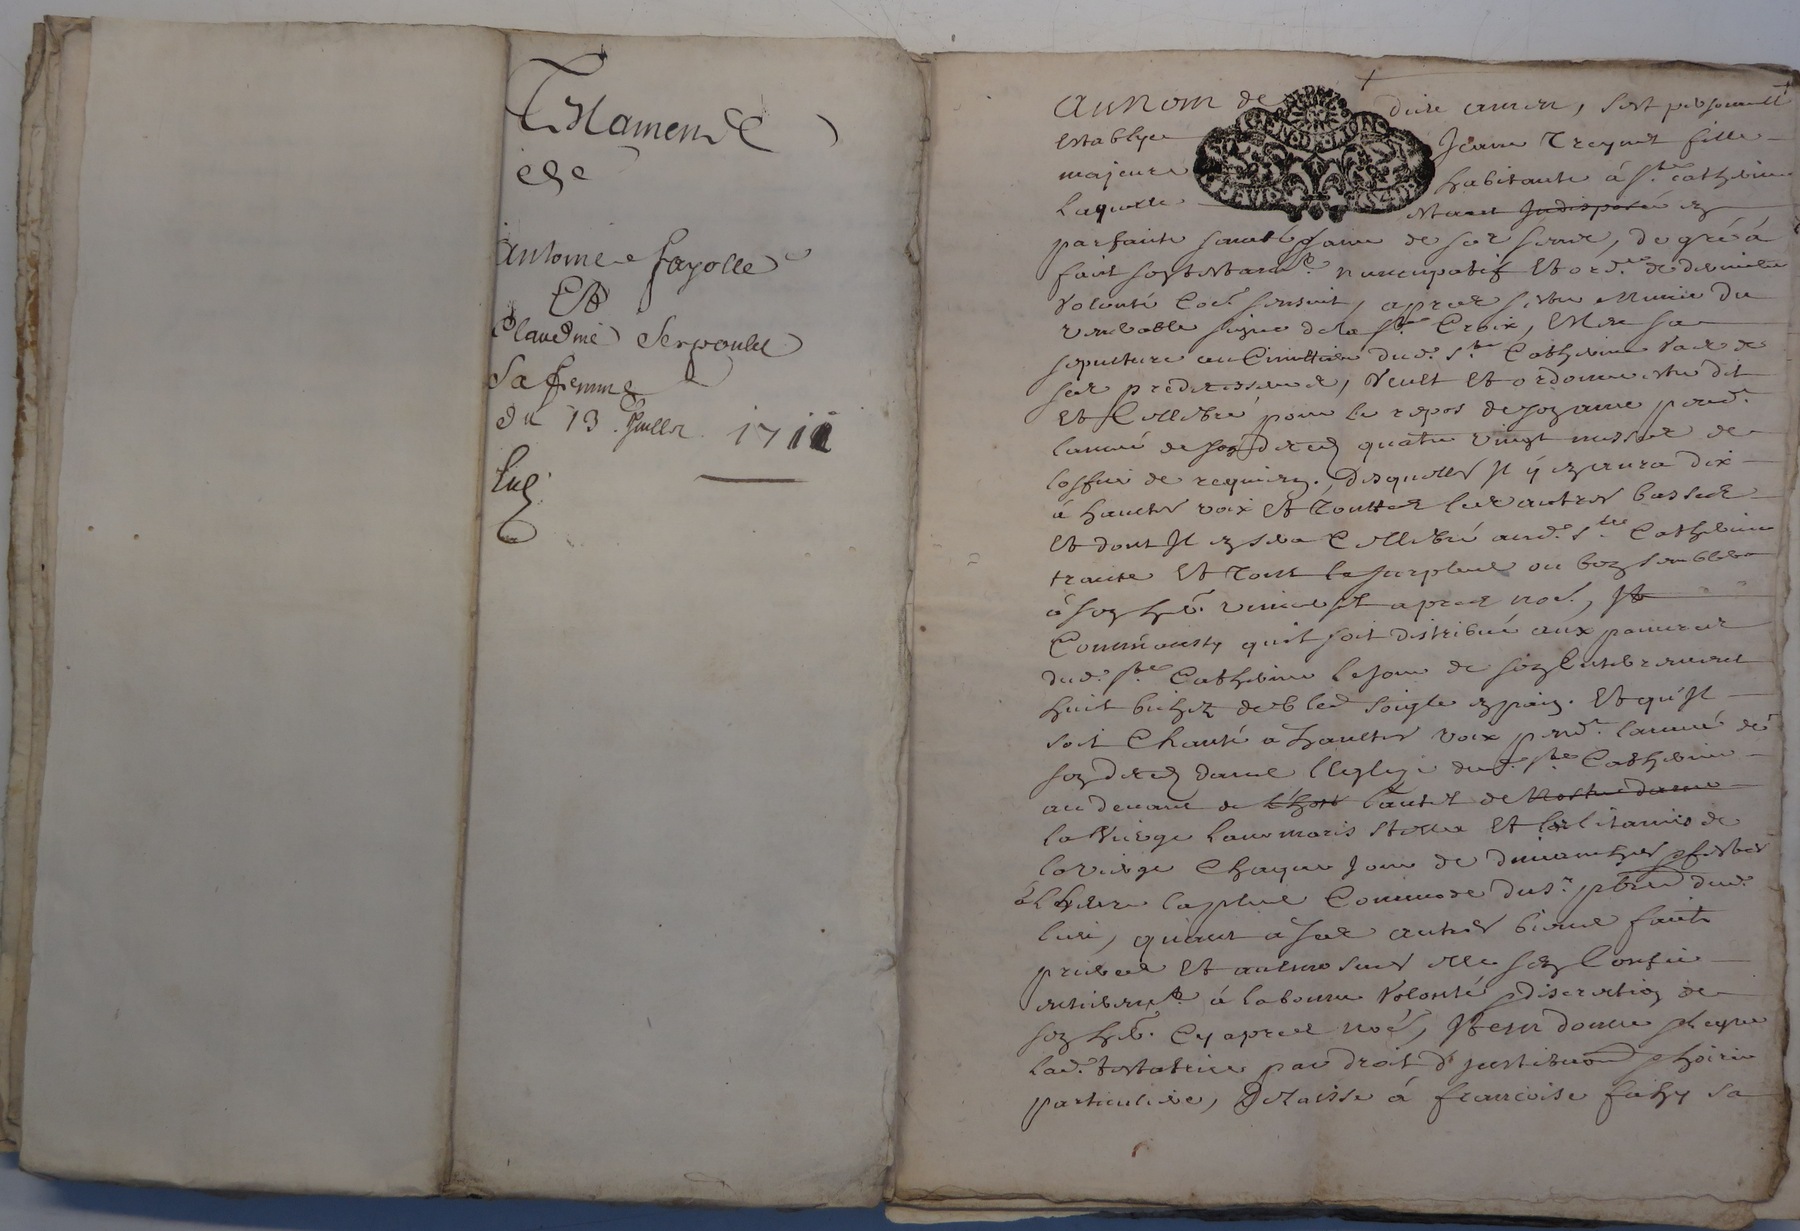 Testament
de
Antoine Fayolle
Et
Claudine Serpoulet
Sa femme
du 13 Juillet 1711
Au nom de dieu amen, sest personnell.t
establye Jeane treynet fille
majeure habitante à s.te catherine
Laquelle estant Indisposée en
parfaite santé saine de ses sens, de gré à
fait son testam.t nuncupatif et ord.ce de derniere
volonté co.e sensuit, apres sestre munie du
venerable signe de la s.te Croix, eslit sa
sepulture au Cimetiere dud. s.te Catherine vase de
ses predecesseurs, Veult et ordonne estre dit
et Cellebré pour le repos de son ame pend.t
lannée de son deced quatre vingt messes de
loffice de requiem, desquelles Il y en aura dix
à haultes voix et touttes les autres basses
et dont Il en sera Cellebré aud. s.te Catherine
trante et tout le surplus ou bon semblera
à son her. universel apres no.é, It
qu'il soit distribué aux pauvres
dud. s.te Catherine le jour de son enterrement
huit bichez de bled soigle en pain. et qu'Il
soit Chanté à haultes voix pend.t lannée de
son deced dans leglize dud. s.te Catherine
au devant de lautel de Nostre dame
la Vierge lave maris stella et les litanies de
la vierge Chaque jour de dimanches & festes
à lheure la plus Commode du s.r dud.
lieu, quant à ses autres biens faits
prieres et aulmosnes elle sen Confie
entierem.t à la bonne volonté & discretion de
son her. cy apres no.é, Item donne & legue
lad. testatrice par droit d'institution & hoirie
particuliere, delaisse à francoise fahy sa